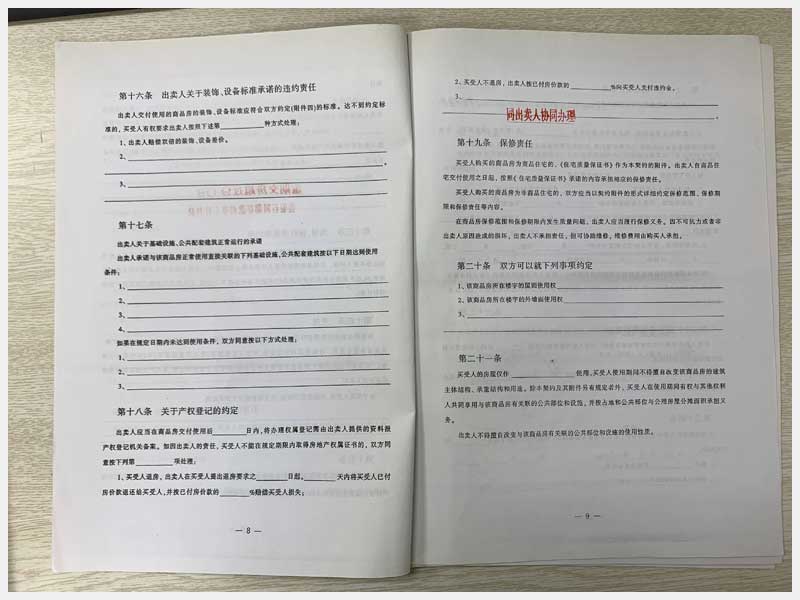 第十六条 出卖人关于装饰、设备标准承诺的违约责任
出卖人交付使用的商品房的装饰、设备标准应符合双方约定(附件四)的标准。达不到约定标
准的,买受人有权要求出卖人按照下述第__________种方式处理:
1、出卖人赔偿双倍的装饰、设备差价。
2、
3、
第十七条
出卖人关于基础设施、公共配套建筑正常运行的承诺
出卖人承诺与该商品房正常使用直接关联的下列基础设施、公共配套建筑按以下日期达到使用
条件。
1、
2、
3、
4、
如果在规定日期内未达到使用条件,双方同意按以下方式处理:
1、
2、
3、
第十八条 关于产权登记的约定
出卖人应当在商品房交付使用后______日内,将办理权属登记需由出卖人提供的资料报
产权登记机关备案。如因出卖人的责任,买受人不能在规定期限内取得房地产权属证书的,双方同
意按下列第________项处理:
1、买受人退房,出卖人在买受人提出退房要求之______日起,______天内将买受人已付
房价款退还给买受人,并按已付房价款的______%赔偿买受人损失;
— 8 —
2、买受人不退房,出卖人按已付房价款的________%向买受人支付违约金。
3、
同出卖人协同办理
第十九条 保修责任
买受人购买的商品房为商品住宅的,《住宅质量保证书》作为本契约的附件。出卖人自商品住
宅交付使用之日起,按照《住宅质量保证书》承诺的内容承担相应的保修责任。
买受人购买的商品房为非商品住宅的,双方应当以契约附件的形式详细约定保修范围、保修期
限和保修责任等内容。
在商品房保修范围和保修期限内发生质量问题,出卖人应当履行保修义务。因不可抗力或者非
出卖人原因造成的损坏,出卖人不承担责任,但可协助维修,维修费用由购买人承担。
第二十条 双方可以就下列事项约定
1、该商品房所在楼宇的屋面使用权
2、该商品房所在楼宇的外墙面使用权
3、
第二十一条
买受人的房屋仅作____________使用,买受人使用期间不得擅自改变该商品房的建筑
主体结构、承重结构和用途。除本契约及其附件另有规定者外,买受人在使用期间有权与其他权利
人共同享用与该商品房有关联的公共部位和设施,并按占地和公共部位与公用房屋分摊面积承担义
务。
出卖人不得擅自改变与该商品房有关联的公共部位和设施的使用性质。
— 9 —